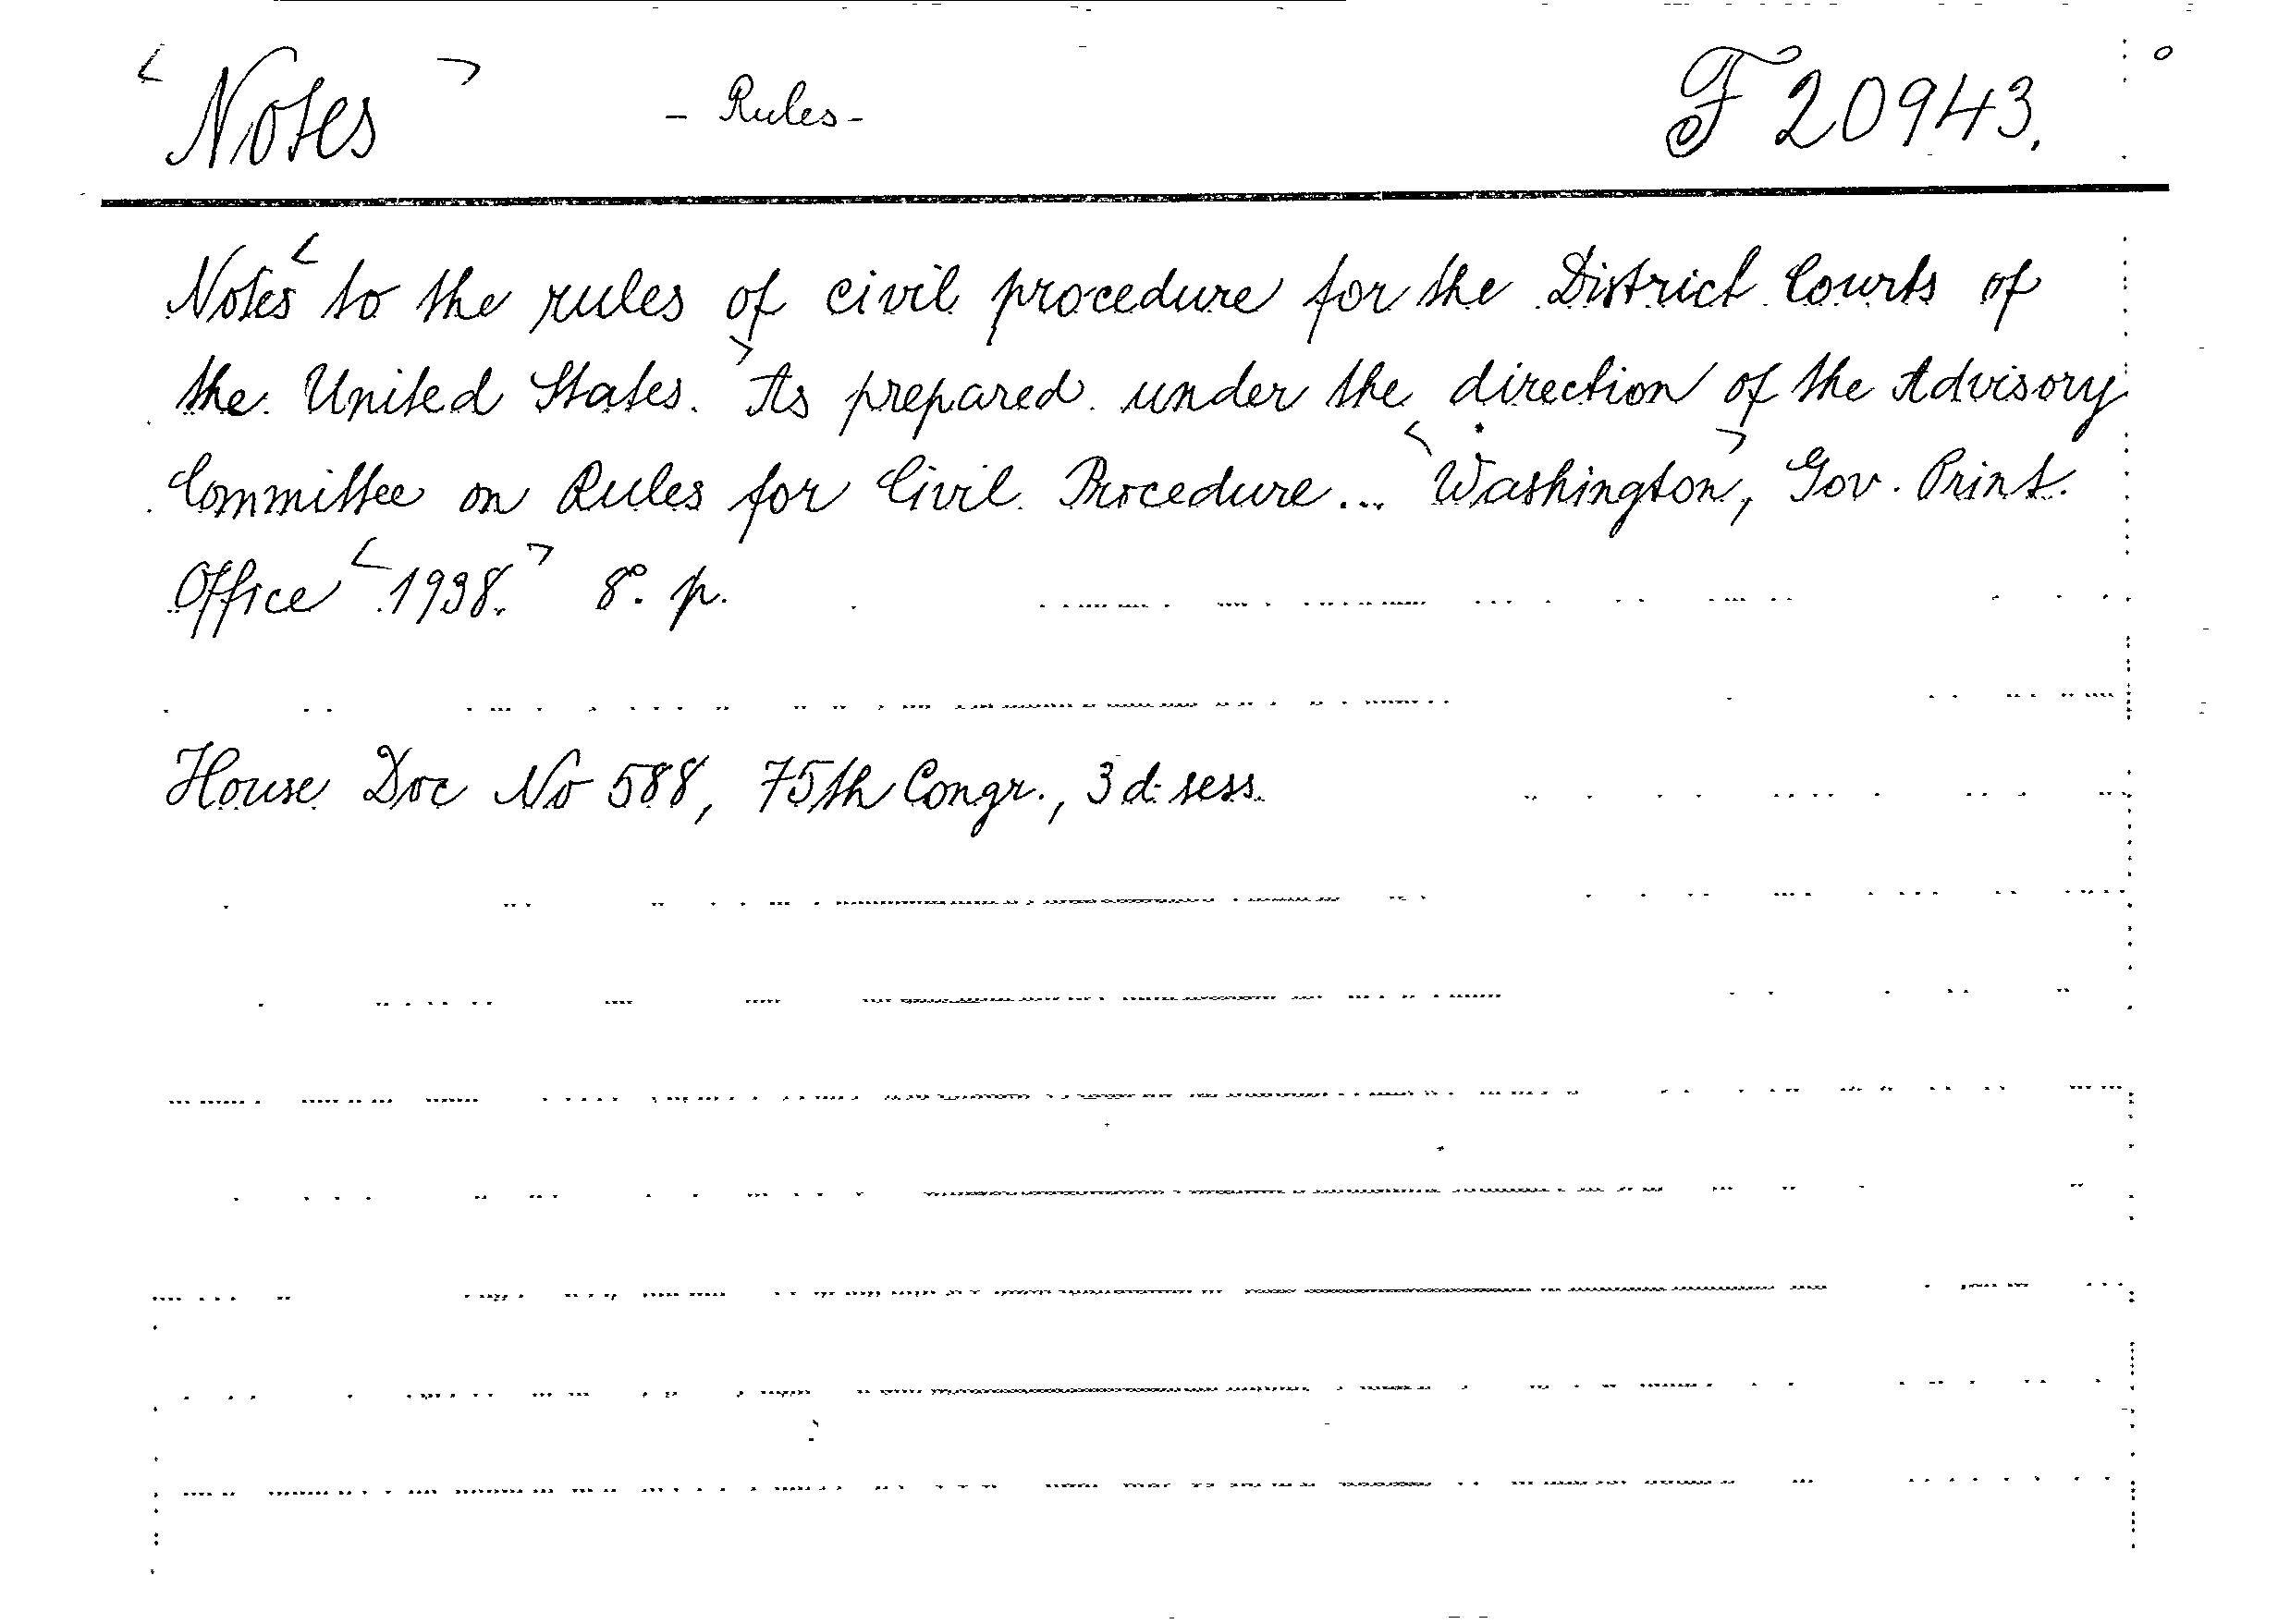 <Notes> - Rules - F 20943.
Notes< to the rules of civil procedure for the District Courts of
the United States.> As prepared under the direction of the Advisory
Committee on Rules for Civil Procedure... <Washington>, Gov. Print.
Office <1938.> 8º. p.
House Doc No 588, 75th Congr., 3d. sess.